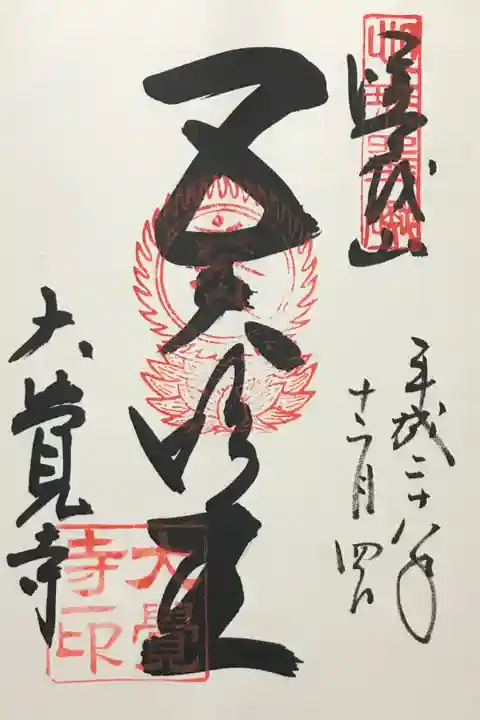 嵯峨山
平成二十八年
十二月四日
五大明王
大覺寺
大覺
寺印